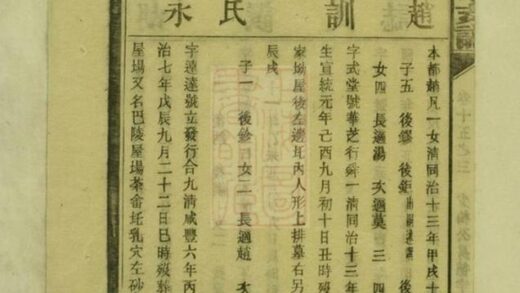 趙訓民永
卷十五之三
本都趙凡一女清同治十三年甲戌十
子五 後鏐 後鉅 後
女四 長適湯 次適莫 三 四
字式堂號華芝行舜一清同治十三年
生宣統元年己酉九月初十日丑時歿
家坳屋後左邊坵內人形上排墓右另
辰戌
子一 後鈐 女二 長適趙 次
字達遠號立發行合九清咸豐六年丙
治七年戊辰九月二十二日巳時歿葬
屋場又名巴陵屋場茶畬坵乳穴左砂